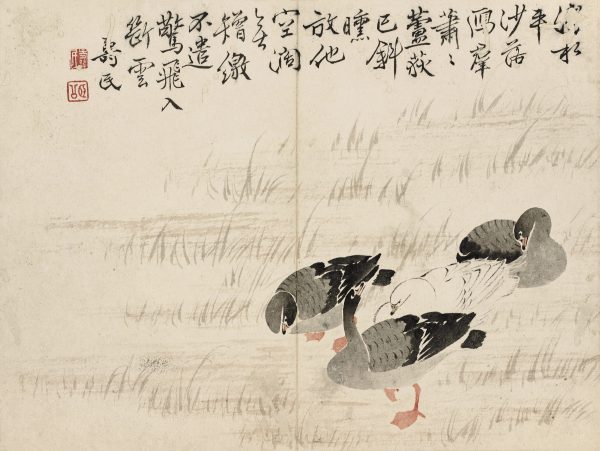 淺水
平
沙落
鴈羣
蕭〻
蘆荻
已斜
曛
放他
空闊
無
矰繳
不遣
驚飛入
斷雲
壽民